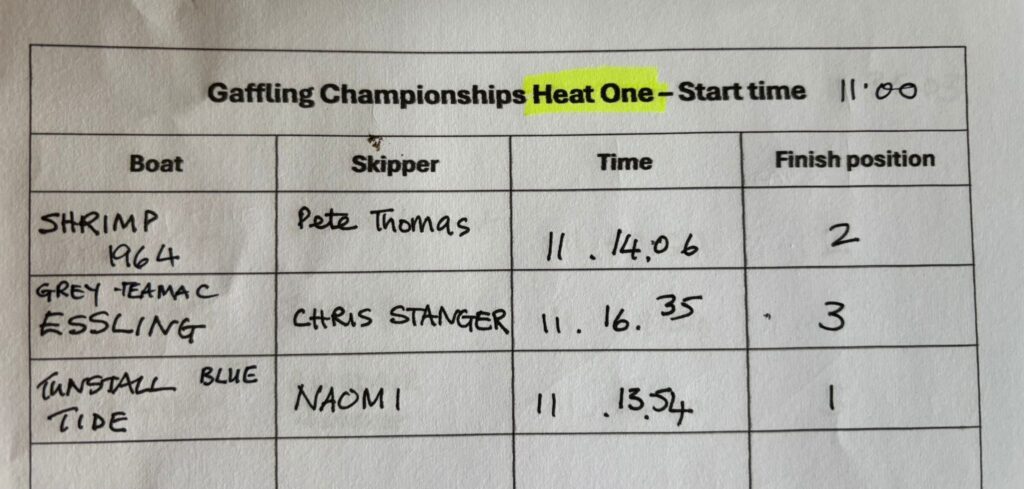 Gaffling Championships Heat One – Start time 11.00
Boat Skipper Time Finish position
SHRIMP
1964 Pete Thomas 11 . 14.06 2
GREY TEAMAC
ESSLING CHRIS STANGER 11. 16. 35 3
TUNSTALL BLUE
TIDE NAOMI 11 .13.54 1